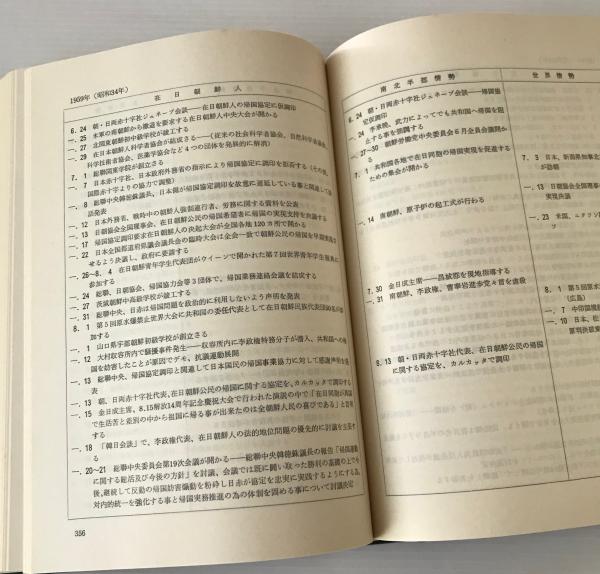 1959年（昭和34年）
在日朝鮮人
6. 24 朝・日両赤十字社ジュネーブ会談――在日朝鮮人の帰国協定に仮調印
―. 25 米軍の南朝鮮から撤退を要求する在日朝鮮人中央大会が開かる
―. 27 北関東朝鮮初中級学校が竣工する
―. 29 在日本朝鮮人科学者協会が結成さる――（従来の社会科学者協会、自然科学者協会、
科学技術者協会、医薬学協会など4つの団体を発展的に解消）
7. 1 総聯関東学院が創立さる
―. 7 日本赤十字社、日本政府外務省の指示により帰国協定に調印を拒否する（その後、
国際赤十字よりの協力で調整）
―. 8 総聯中央韓徳銖議長、日本側が帰国協定調印を故意に遅延している事と関連して
談話発表
―. 12 日本外務省、戦時中の朝鮮人強制連行者、労務に関する資料を公表
―. 13 日朝協会全国理事会、在日朝鮮公民の帰国希望者に帰国の実現支持を決議する
―. 17 帰国協定調印要求在日朝鮮人の決起大会が全国各地120ヵ所で開かる
―. 22 日本全国都道府県議会議長会の臨時大会は全会一致で朝鮮公民の帰国を早期実現さ
せるよう決議し、政府に要請する
―. 26～8. 4 在日朝鮮青年学生代表団がウイーンで開かれた第7回世界青年学生親善に
参加する
―. 24 総聯、日朝協会、帰国協力会等3団体で、帰国業務連絡会議を結成する
―. 27 茨城朝鮮中高級学校が竣工する
―. 31 総聯中央、日赤は帰国問題を政治的に利用しないよう声明を発表
8. 1 第5回原水爆禁止世界大会に共和国の委任代表として在日朝鮮民族代表団80名が参加
―. 1 山口県宇部朝鮮初級学校が創立さる
―. 12 大村収容所内で騒擾事件発生――収容所内に李政権特務分子が潜入、共和国への帰
国を妨害したことが原因でデモ、抗議運動展開
―. 13 総聯中央、帰国協定調印と関連して日本国民の帰国事業協力に対して感謝声明を発
表
―. 13 朝、日両赤十字社代表、在日朝鮮公民の帰国に関する協定を、カルカッタで調印する
―. 15 金日成主席、8.15解放14周年記念慶祝大会で行われた演説の中で「在日同胞が異国
で生活苦と差別の中から祖国に帰る事が出来たのは全朝鮮人民の喜びである」と言明
する
―. 18 「韓日会談」で、李政権代表、在日朝鮮人の法的地位問題の優先的に討議を主張す
る
―. 20～21 総聯中央委員会第19次会議が開かる――総聯中央韓徳銖議長の報告「帰国運動
に関する総活及び今後の方針」を討議、会議では既に闘い取った勝利の基礎の上で今
後、継続して反動の帰国妨害蠢動を粉砕し日赤が協定を忠実に実践するようにする為、
対内的統一を強化する事と帰国実務推進の為の体制を固める事について討議決定
356
南北半部情勢
6. 24 朝・日両赤十字社ジュネーブ会談――帰国協
定仮調印
―. 24 李承晩、武力によってでも共和国へ帰国を阻
止する事を強調する
―. 27―30 朝鮮労働党中央委員会6月全員会議開か
る
7. 1 共和国各地で在日同胞の帰国実現を促進する
ための集会が開かる
―. 14 南朝鮮、原子炉の起工式が行わる
7. 30 金日成主席――昌城郡を現地指導する
―. 31 南朝鮮、李政権、曺奉岩進歩党々首を虐殺
8. 13 朝・日両赤十字社代表、在日朝鮮公民の帰国
に関する協定を、カルカッタで調印
世界情勢
7. 3 日本、新潟県知事北
が訪朝
―. 13 日朝協会全国理事
実現決議
―. 23 米国、ニクソン
8. 1 第5回原
（広島）
―. 7 中印国境
―. 10 日本、松
原判決破棄